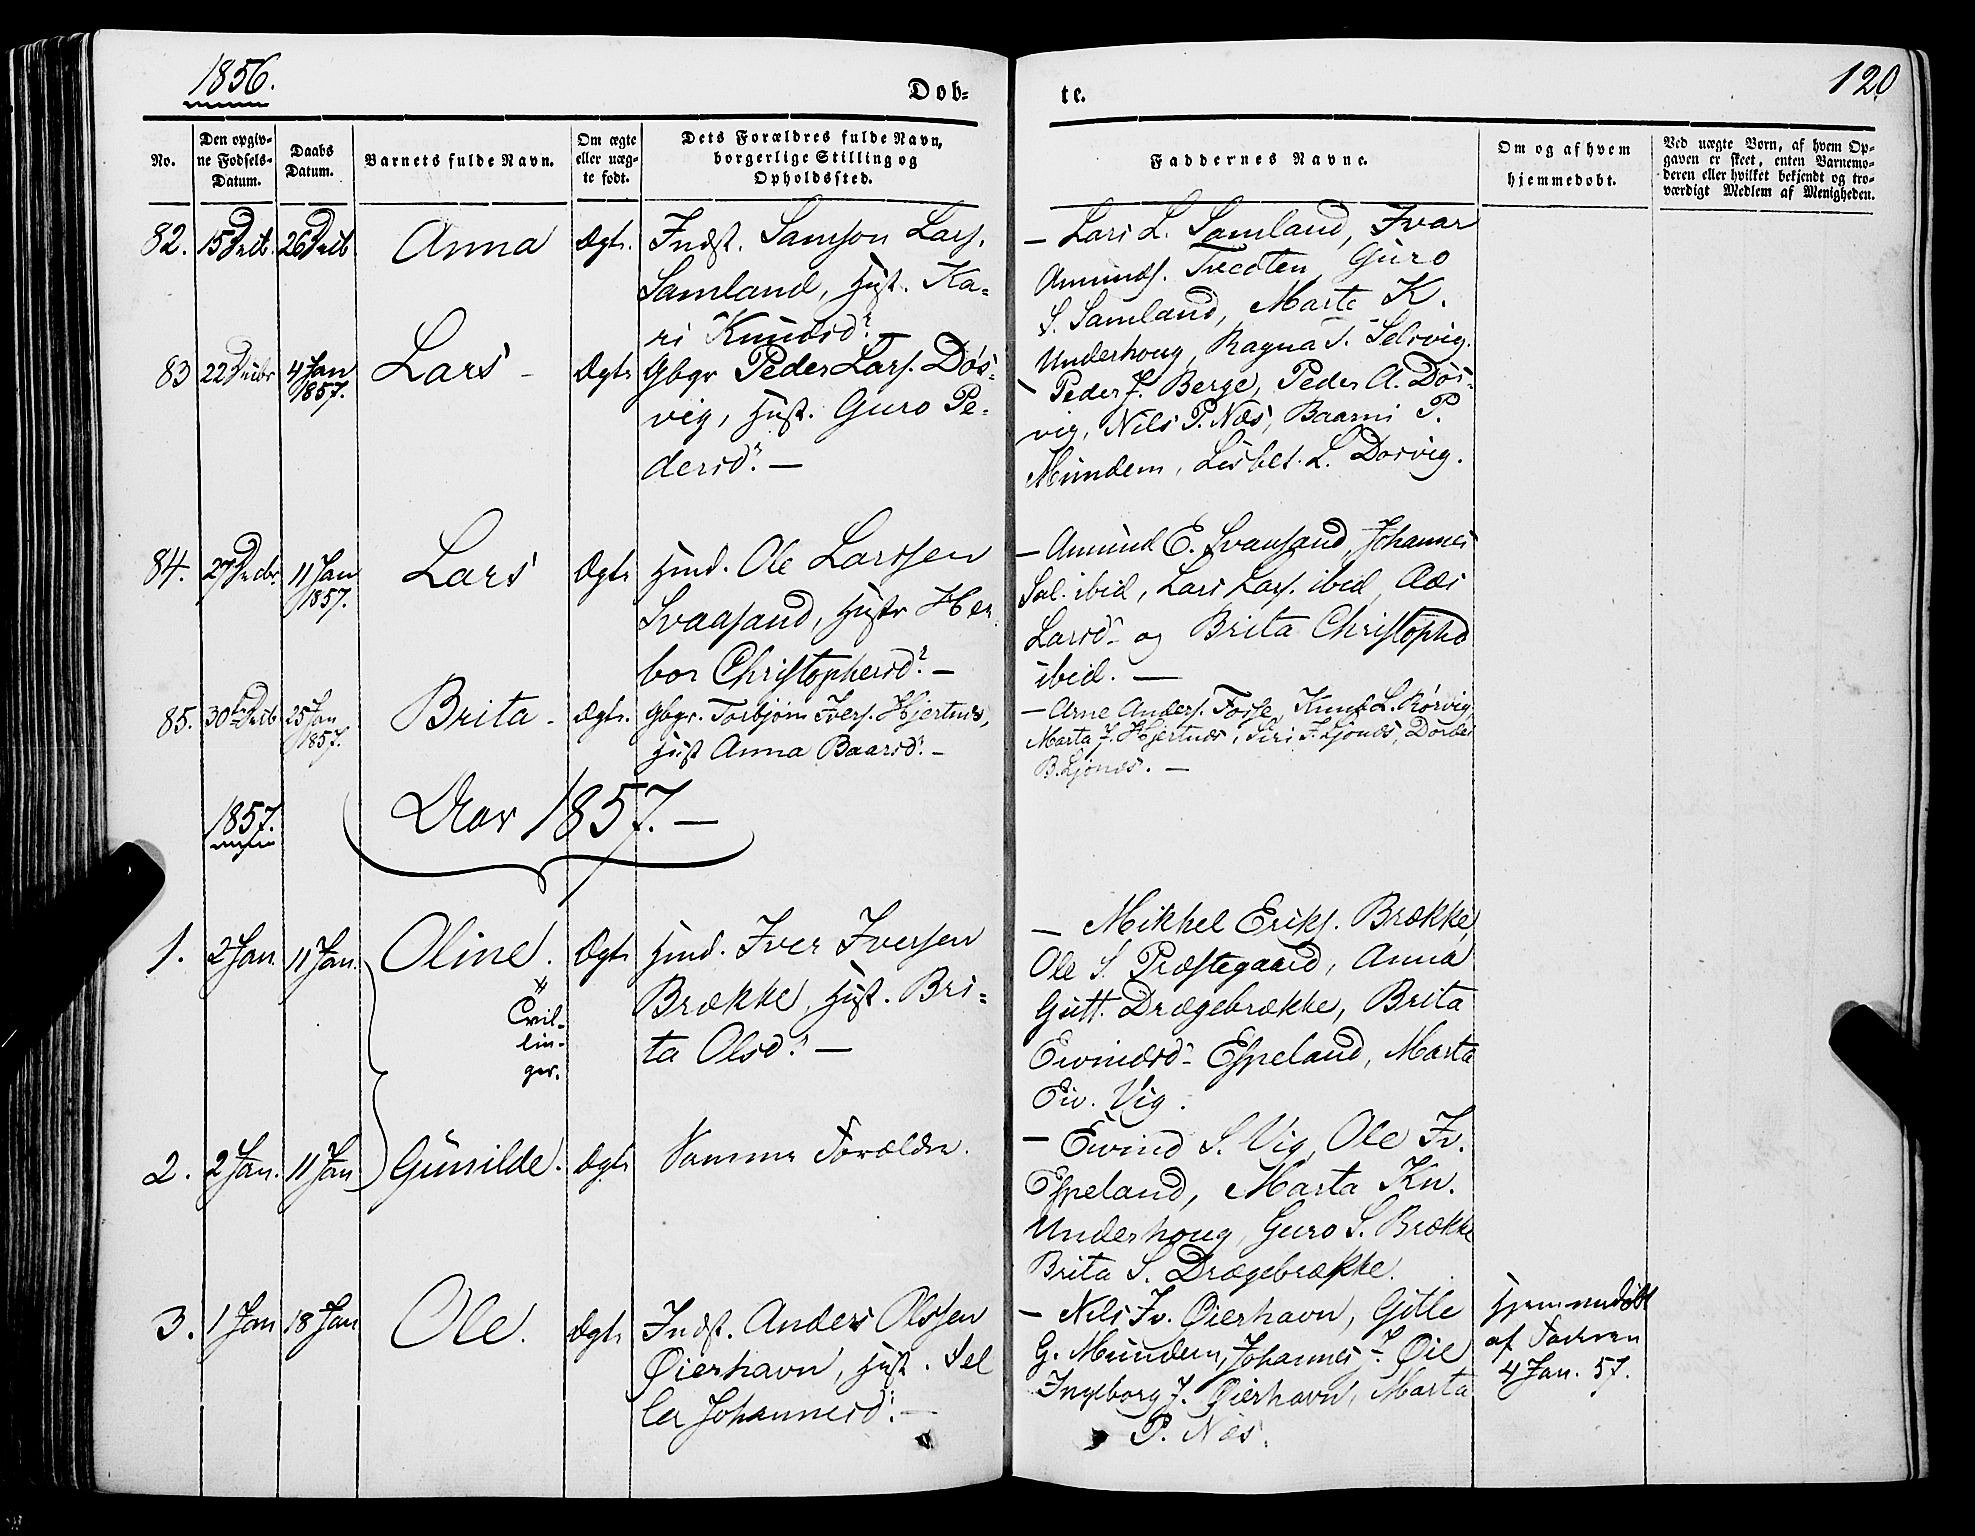 1856.
Døb-
te.
120
No.
Den opgiv-
ne Fødsels-
Datum.
Daabs
Datum.
Barnets fulde Navn.
Om ægte
eller uæg-
te født.
Dets Forældres fulde Navn,
borgerlige Stilling og
Opholdssted.
Faddernes Navne.
Om og af hvem
hjemmedøbt.
Ved uægte Børn, af hvem Op-
gaven er skeet, enten Barnemo-
deren eller hvilket bekjendt og tro-
værdigt Medlem af Menigheden.
82. 15 Decb. 26 Decb. Anna Ægte. Indst. Samson Lars.
Samland, Hust. Ka-
ri Knudsd.
– Lars L. Samland, Ivar
Amunds. Tvedten, Guro
S. Samland, Marte K.
Underhoug, Ragna T. Selsvig.
83 22 Decbr 4 Jan
1857. Lars – Ægte Gbgr Peder Lars. Døs-
vig, Hust. Guro Pe-
dersd. —
– Peder J. Berge, Peder A. Døs-
vig, Nils P. Næs, Baarni P.
Mundem, Lisbet. L. Døsvig.
84. 27 Decbr. 11 Jan
1857. Lars Ægte Hmd. Ole Larssen
Svaasand, Hustr Her
bor Christophersd. –
– Amund E. Svaasand, Johannes
Sal. ibid, Lars Lars. ibid,
Larsd. og Brita Christophd
ibid. —
85. 30 Decb 25 Jan
1857. Brita – Ægte. Gbgr. Torbjørn Ivers. Hjertnes,
Hust Anna Baarsd. –
– Arne Anders. Fosse, Knut L. Rørvig,
Marta J. Hjertnæs, Siri J. Ljonæs, Dordei
B. Ljonæs. —
1857.
Aar 1857. —
1. 2 Jan. 11 Jan. Oline. Ægte Hmd. Iver Iversen
Brække, Hust. Bri-
ta Olsd. —
Tvil-
lin-
ger.
– Mikkel Eriks. Brække,
Ole S. Præstegaard, Anna
Gutt. Drægebrække, Brita
Eivindsd. Espeland, Marta
Eiv. Vig.
2. 2 Jan. 11 Jan Gunilde. Ægte Samme Forældre.
– Eivind S. Vig, Ole Iv.
Espeland, Marta Kn.
Underhoug, Guro S. Brække
Brita S. Drægebrække.
3. 1 Jan 18 Jan Ole. Ægte Indst. Anders Olssen
Øierhavn, Hust. Sel
la Johannesd. —
– Nils Iv. Øierhavn, Gitle
G. Mundem, Johannes J. Øie
Ingeborg J. Øierhavn, Marta
P. Næs.
Hjemmedøbt
af Faderen
4 Jan. 57.